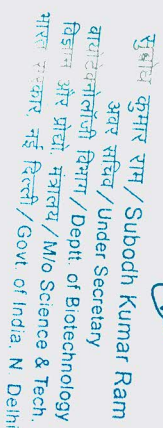 सुबोध कुमार राम/Subodh Kumar Ram
अवर सचिव/Under Secretary
बायोटेक्नोलॉजी विभाग/Deptt. of Biotechnology
विज्ञान और प्रौद्यो. मंत्रालय/M/o Science & Tech.
भारत सरकार, नई दिल्ली/Govt. of India, N. Delhi